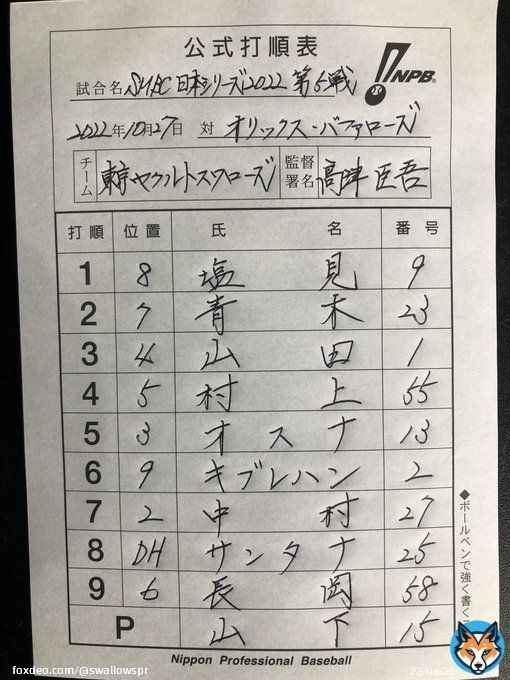 公式打順表
NPB
試合名 SMBC日本シリーズ2022 第5戦
2022年10月27日 対 オリックス・バファローズ
チーム 東京ヤクルトスワローズ 監督署名 髙津臣吾
打順 位置 氏 名 番号
1 8 塩 見 9
2 7 青 木 23
3 4 山 田 1
4 5 村 上 55
5 3 オスナ 13
6 9 キブレハン 2
7 2 中 村 27
8 DH サンタナ 25
9 6 長 岡 58
P 山 下 15
◆ボールペンで強く書く
Nippon Professional Baseball
foxdeo.com/@swallowspr